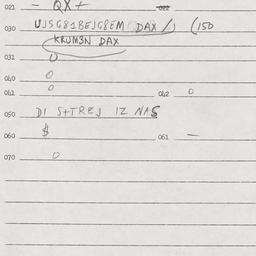 021 — QX+ 022
030 UJSG81BEJG8EM DAX / ) (150
KRUM3N DAX
031 0
040 0
041 0 042 0
050 DI S+TREJ IZ NAS
060 $ 061 —
070 0